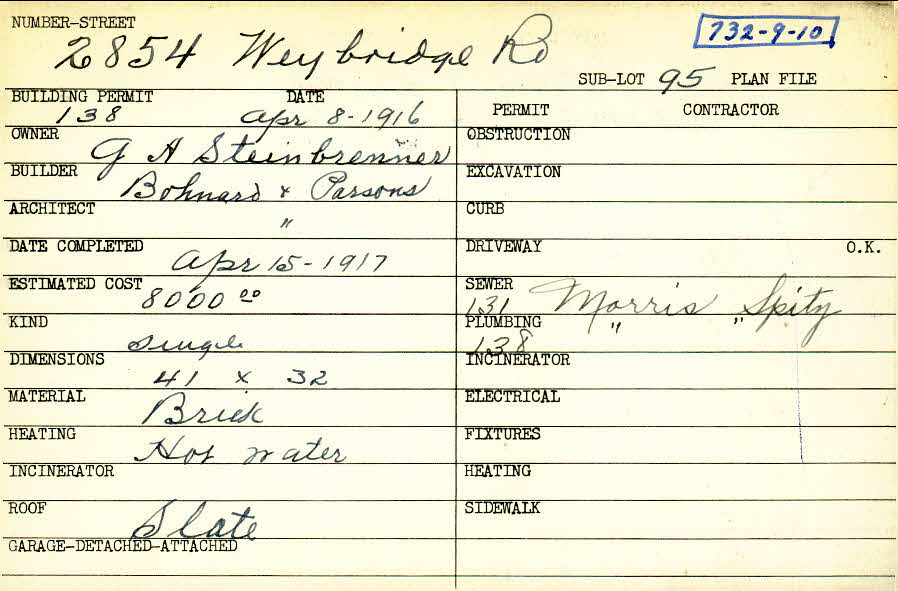 NUMBER-STREET
2854 Weybridge Rd
732-9-10
SUB-LOT 95 PLAN FILE
BUILDING PERMIT DATE
138 Apr 8-1916
PERMIT CONTRACTOR
OWNER
G A Steinbrenner
OBSTRUCTION
BUILDER
Bohnard & Parsons
EXCAVATION
ARCHITECT
"
CURB
DATE COMPLETED
Apr 15-1917
DRIVEWAY O.K.
ESTIMATED COST
8000 00
SEWER
131 Morris Spitz
KIND
Single
PLUMBING " "
138
DIMENSIONS
41 x 32
INCINERATOR
MATERIAL
Brick
ELECTRICAL
HEATING
Hot water
FIXTURES
INCINERATOR
HEATING
ROOF
Slate
SIDEWALK
GARAGE-DETACHED-ATTACHED